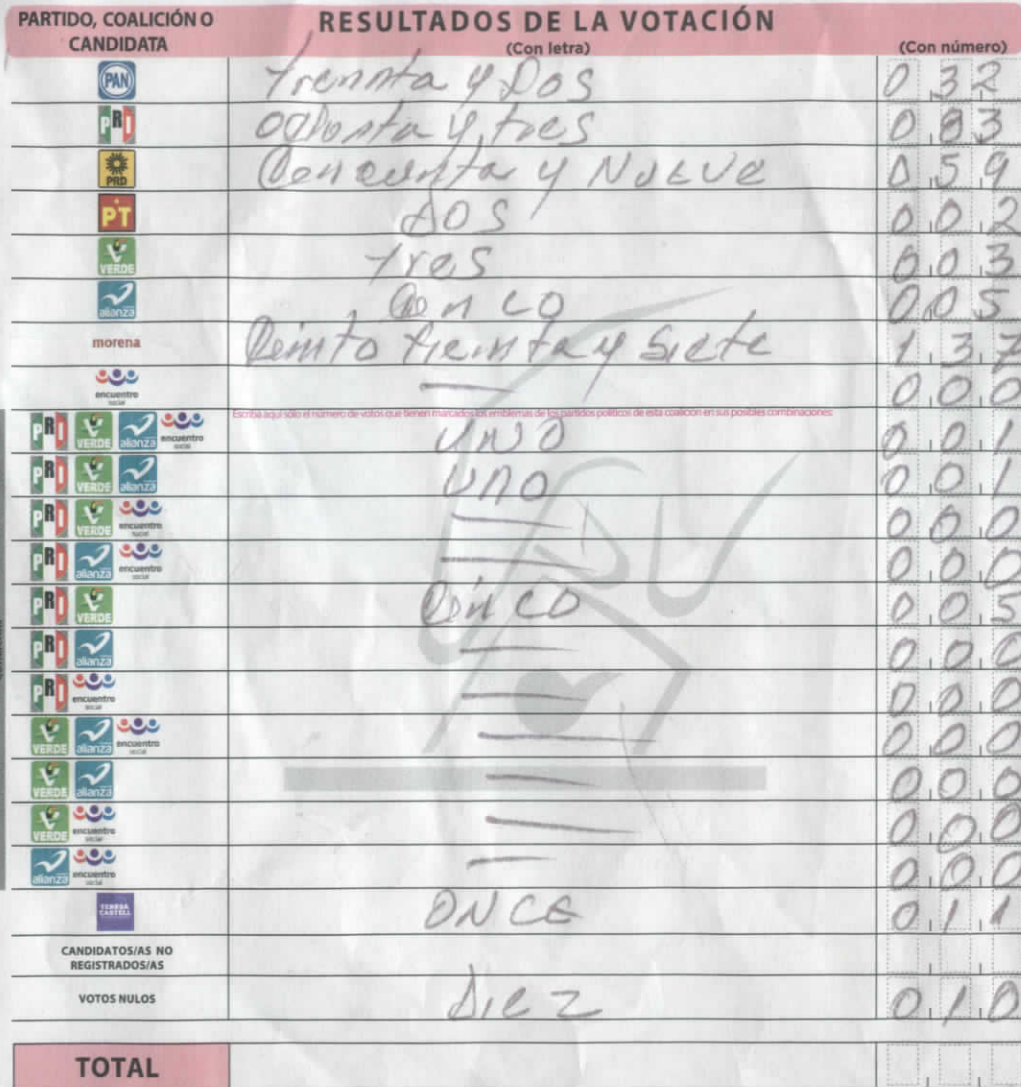 PARTIDO, COALICIÓN O CANDIDATA RESULTADOS DE LA VOTACIÓN (Con letra) (Con número)
PAN Trennta y Dos 0 3 2
PRI ochonta y tres 0 8 3
PRD Cencuenta y NUEVE 0 5 9
PT DOS 0 0 2
VERDE tres 0 0 3
alianza Cenco 0 0 5
morena Ceinto treinta y Siete 1 3 7
encuentro social — 0 0 0
Escriba aquí sólo el número de votos que tienen marcados los emblemas de los partidos políticos de esta coalición en sus posibles combinaciones:
PRI VERDE alianza encuentro social UNO 0 0 1
PRI VERDE alianza UNO 0 0 1
PRI VERDE encuentro social — 0 0 0
PRI alianza encuentro social — 0 0 0
PRI VERDE CinCO 0 0 5
PRI alianza — 0 0 0
PRI encuentro social — 0 0 0
VERDE alianza encuentro social — 0 0 0
VERDE alianza — 0 0 0
VERDE encuentro social — 0 0 0
alianza encuentro social — 0 0 0
TERESA CASTELL ONCE 0 1 1
CANDIDATOS/AS NO REGISTRADOS/AS
VOTOS NULOS Diez 0 1 0
TOTAL